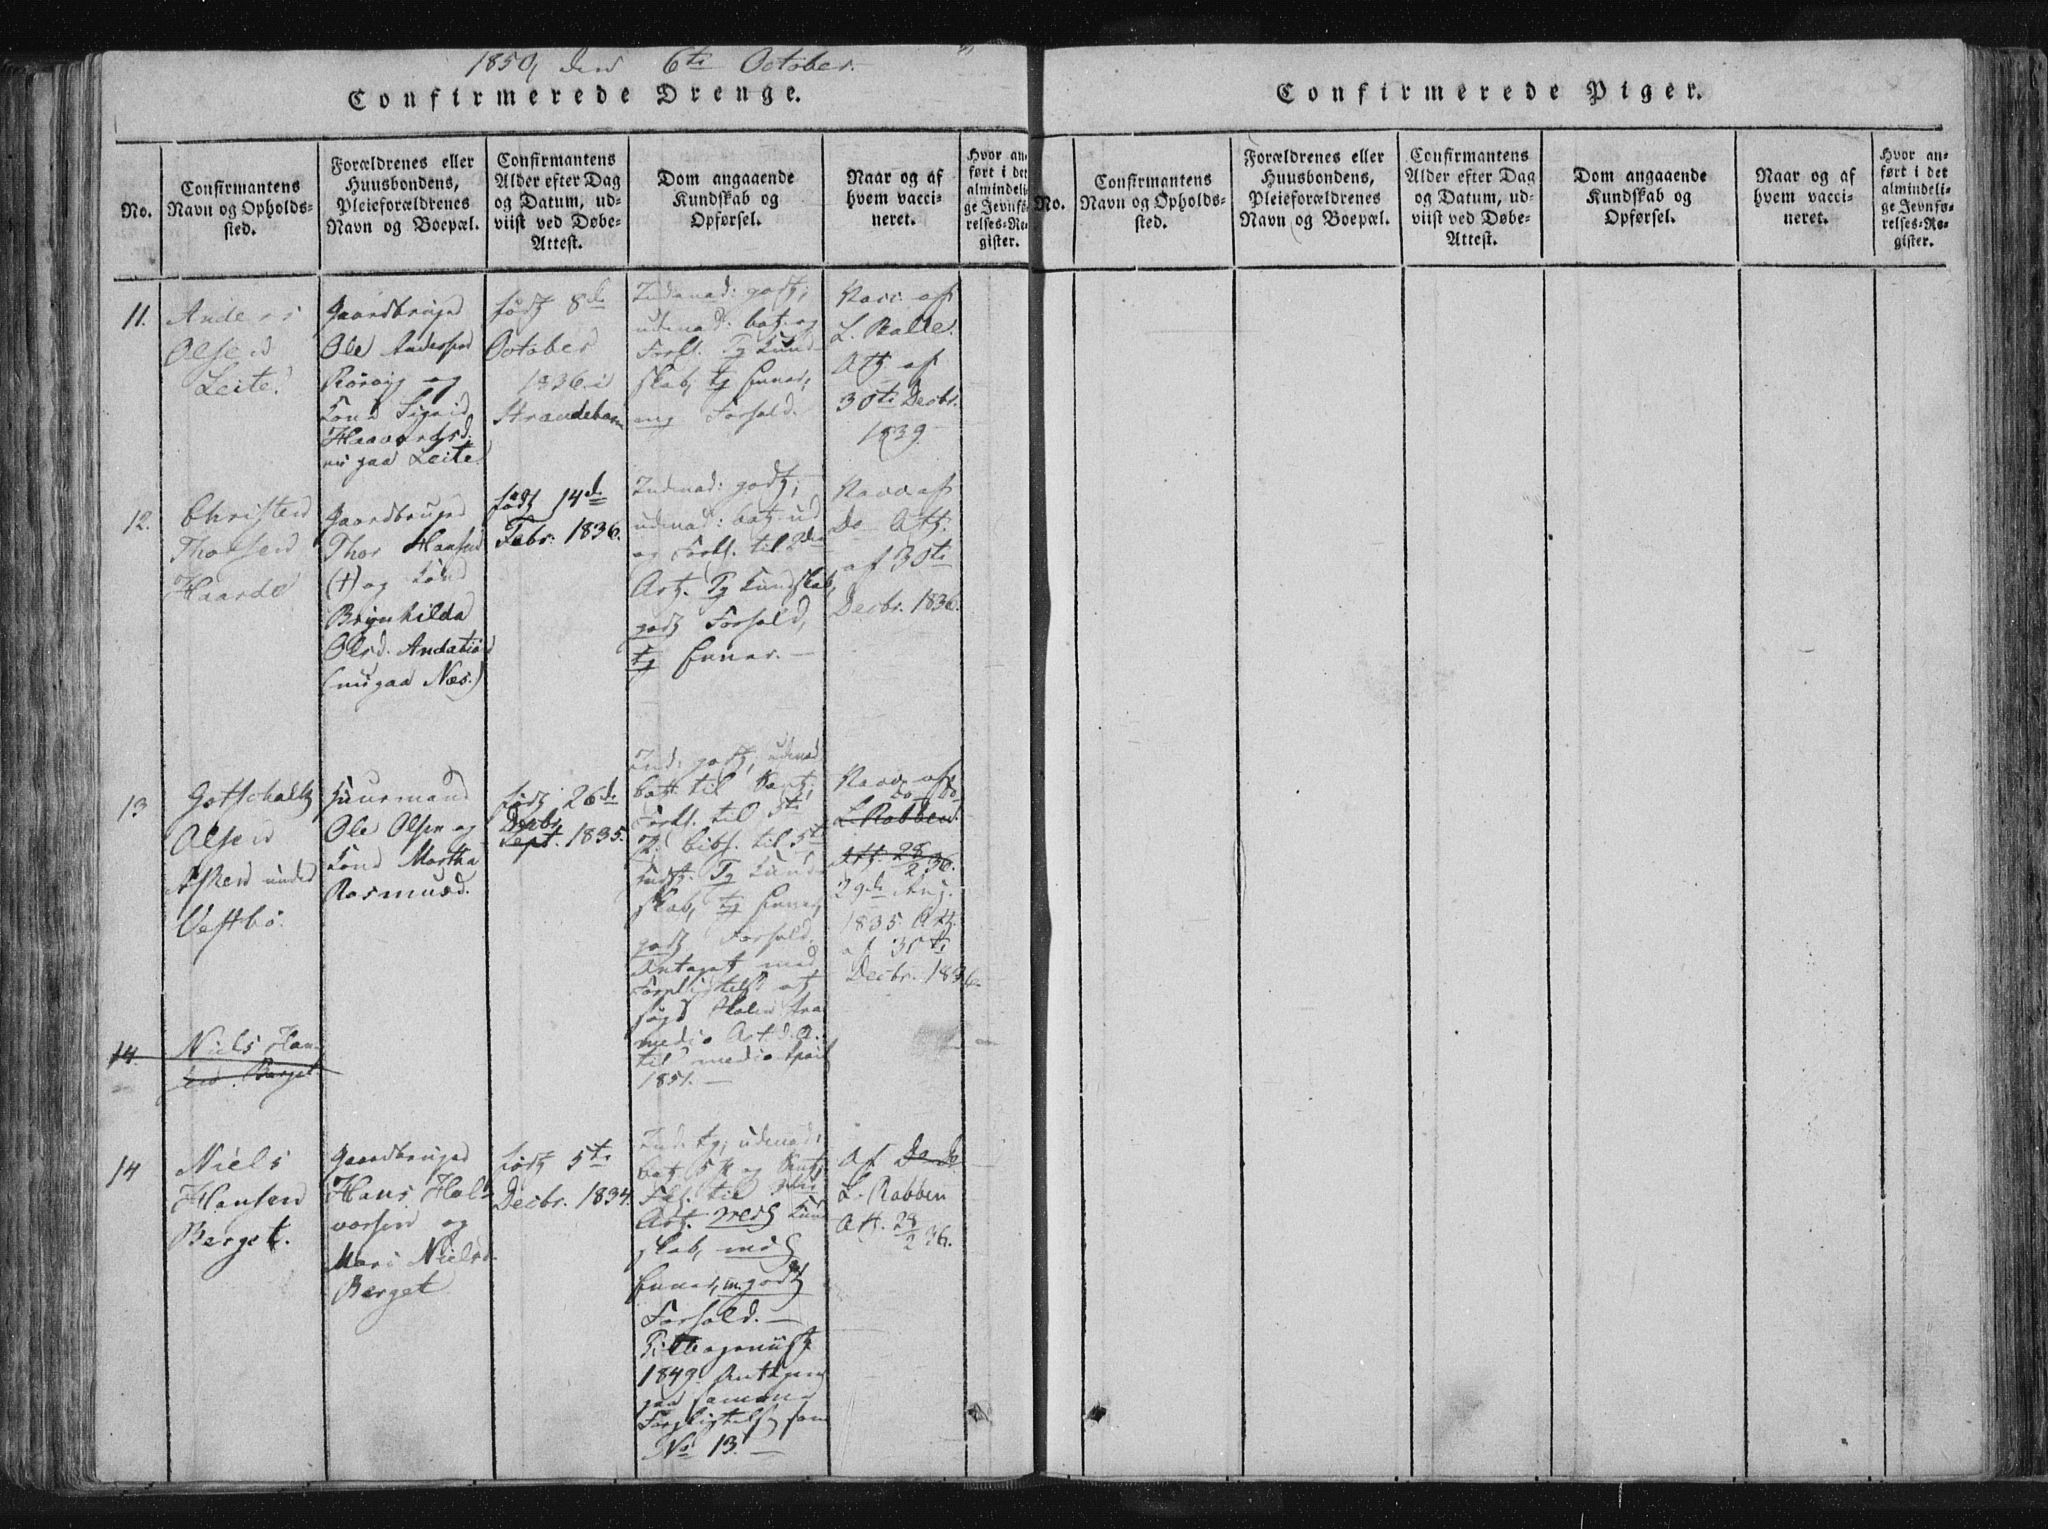 1850, den 6te October.
Confirmerede Drenge.
No.
Confirmantens
Navn og Opholds-
sted.
Forældrenes eller
Huusbondens,
Pleieforældrenes
Navn og Boepæl.
Confirmantens
Alder efter Dag
og Datum, ud-
viist ved Døbe-
Attest.
Dom angaaende
Kundskab og
Opførsel.
Naar og af
hvem vacci-
neret.
Hvor an-
ført i det
almindeli-
ge Jevnfø-
relses-Re-
gister.
11.
Anders
Olsen
Leite.
Gaardbruger
Ole Andersen
og
Kone Sigrid
Haavardsd.
nu paa Leite.
født 8de
October
1836 i
Strandebarm
Indenad: godt;
udenad: bog og
Forkl. Tg Kund-
skab, tg Evner,
mg Forhold.
Vacc. af
L. Balle.
Att. af
30te Decbr.
1839.
12.
Christen
Thorsen
Haarde
Gaardbruger
Thor Hansen
(†) og Kone
Brynhilda
Olsd.
(nu paa Næs.)
født 14de
Febr. 1836.
Indenad: godt;
udenad: bog ud
og Forkl. til 2den
Art. Tg Kundskab,
godt Forhold,
tg Evner. —
Vacc. af
Do Att.
af 30te
Decbr. 1836.
13
Gotschalk
Olsen
under
Vestbø.
Huusmand
Ole Olsen og
Kone Martha
Rasmusd.
født 26de
Decbr.
Sept. 1835.
Ind: godt, udenad
bog til
Forkl. til 3te
bibl. til 5te
Tg Kund-
skab, tg Evner,
godt Forhold.
Antaget med
Forpligtelse at
søge Skolen fra
medio Oct. d. A.
til medio April
1851. —
Vacc. af
do do
L. Rabben.
Att. 28/2 36.
29de Aug.
1835. Att.
af 30te
Decbr. 1836.
14.
Niels Han-
sen Berget
14
Niels
Hansen
Berget.
Gaardbruger
Hans Hal-
vorsen og
Mari Nielsd.
Berget
født 5te
Decbr. 1834.
Ind: tg; udenad:
bog 5 St og
til
Art. Kund-
skab,
Evner, m. godt
Forhold. —
1849. Antagen
paa samme
Forpligtelse som
No 13. —
Af Do Do
L. Rabben
Att. 28/2 36.
Confirmerede Piger.
No.
Confirmantens
Navn og Opholds-
sted.
Forældrenes eller
Huusbondens,
Pleieforældrenes
Navn og Boepæl.
Confirmantens
Alder efter Dag
og Datum, ud-
viist ved Døbe-
Attest.
Dom angaaende
Kundskab og
Opførsel.
Naar og af
hvem vacci-
neret.
Hvor an-
ført i det
almindeli-
ge Jevnfø-
relses-Re-
gister.